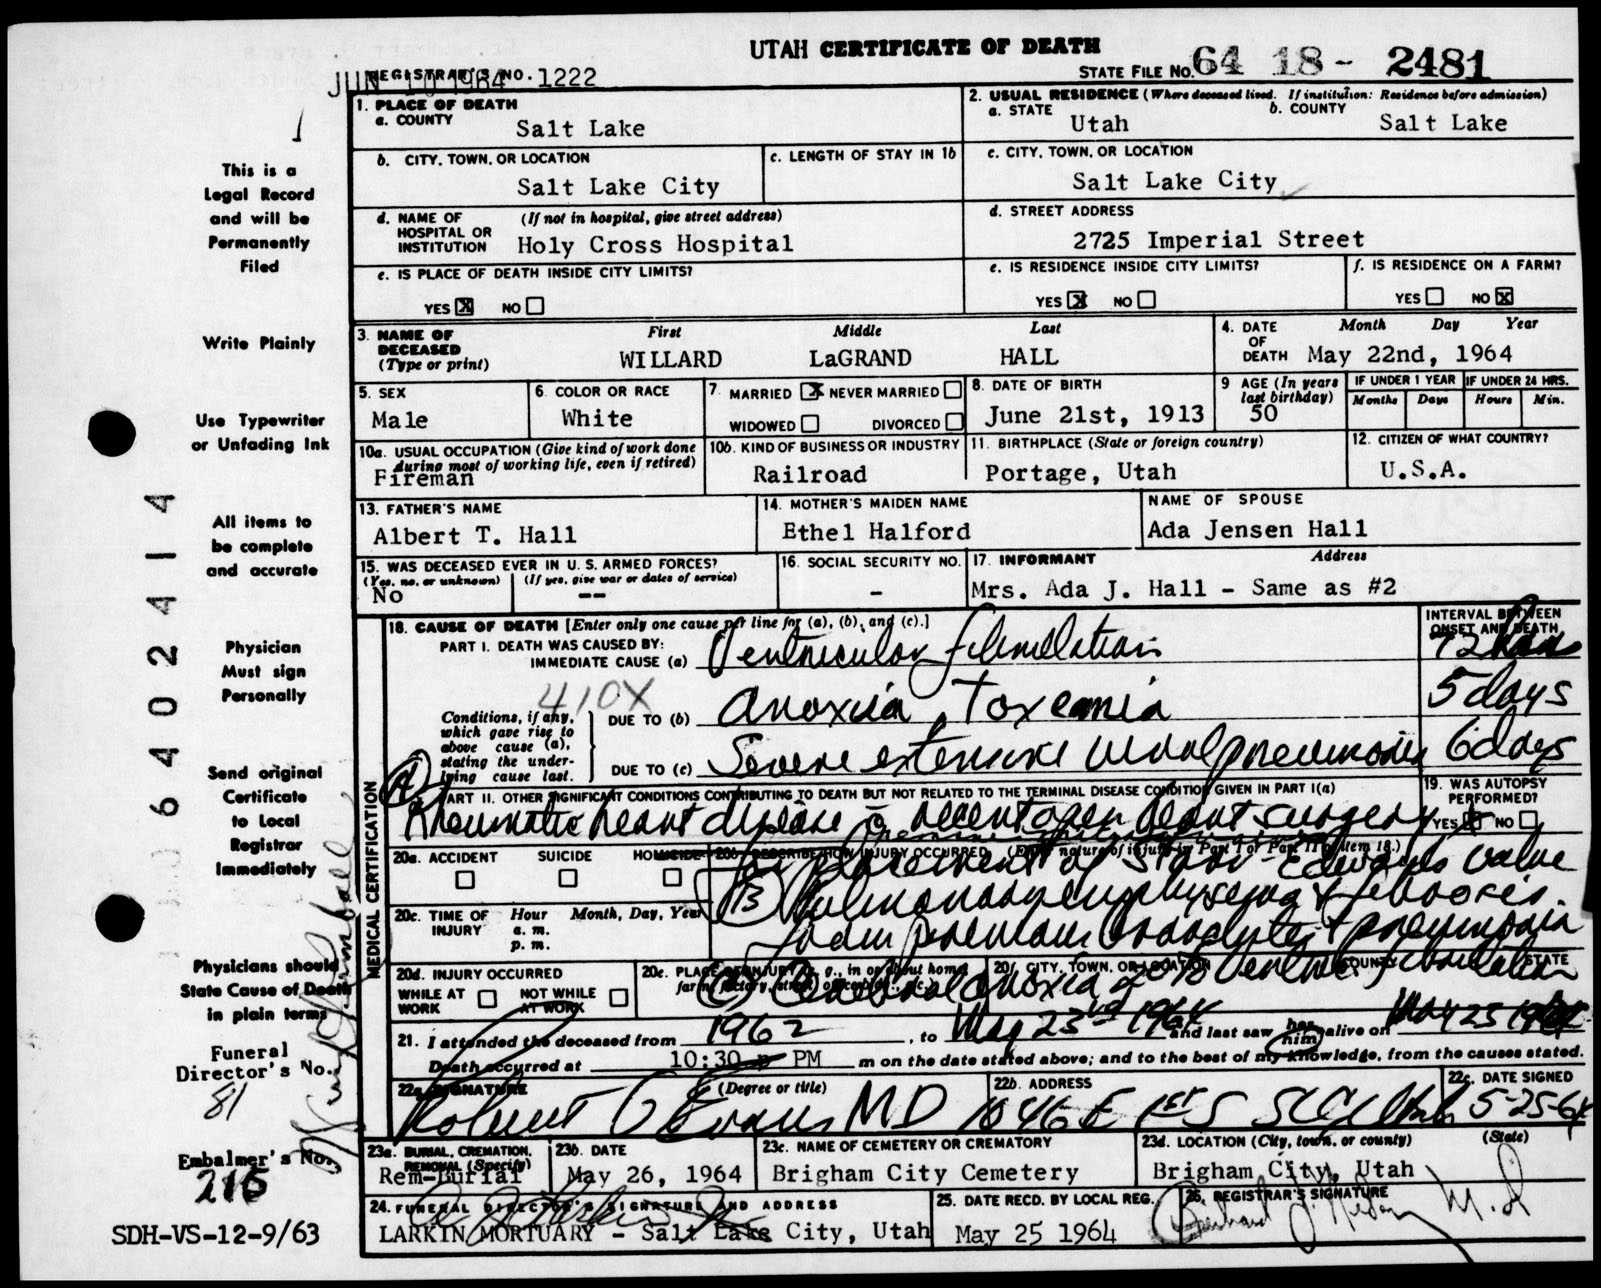 UTAH CERTIFICATE OF DEATH
JUN 10 1964 REGISTRAR'S NO. 1222
STATE FILE No. 64 18 - 2481
1. PLACE OF DEATH
a. COUNTY
Salt Lake
2. USUAL RESIDENCE (Where deceased lived. If institution: Residence before admission)
a. STATE Utah b. COUNTY Salt Lake
b. CITY, TOWN, OR LOCATION
Salt Lake City
c. LENGTH OF STAY IN 1b
c. CITY, TOWN, OR LOCATION
Salt Lake City
d. NAME OF HOSPITAL OR INSTITUTION (If not in hospital, give street address)
Holy Cross Hospital
d. STREET ADDRESS
2725 Imperial Street
e. IS PLACE OF DEATH INSIDE CITY LIMITS?
YES X NO
e. IS RESIDENCE INSIDE CITY LIMITS?
YES X NO
f. IS RESIDENCE ON A FARM?
YES NO X
3. NAME OF DECEASED (Type or print)
First Middle Last
WILLARD LaGRAND HALL
4. DATE OF DEATH Month Day Year
May 22nd, 1964
5. SEX
Male
6. COLOR OR RACE
White
7. MARRIED X NEVER MARRIED
WIDOWED DIVORCED
8. DATE OF BIRTH
June 21st, 1913
9 AGE (In years last birthday)
50
IF UNDER 1 YEAR
Months Days
IF UNDER 24 HRS.
Hours Min.
10a. USUAL OCCUPATION (Give kind of work done during most of working life, even if retired)
Fireman
10b. KIND OF BUSINESS OR INDUSTRY
Railroad
11. BIRTHPLACE (State or foreign country)
Portage, Utah
12. CITIZEN OF WHAT COUNTRY?
U.S.A.
13. FATHER'S NAME
Albert T. Hall
14. MOTHER'S MAIDEN NAME
Ethel Halford
NAME OF SPOUSE
Ada Jensen Hall
15. WAS DECEASED EVER IN U. S. ARMED FORCES?
(Yes, no, or unknown) (If yes, give war or dates of service)
No --
16. SOCIAL SECURITY NO.
-
17. INFORMANT Address
Mrs. Ada J. Hall - Same as #2
MEDICAL CERTIFICATION
18. CAUSE OF DEATH [Enter only one cause per line for (a), (b), and (c).]
INTERVAL BETWEEN ONSET AND DEATH
PART I. DEATH WAS CAUSED BY:
IMMEDIATE CAUSE (a) Ventricular fibrillation 72 hrs
410X
Conditions, if any, which gave rise to above cause (a), stating the underlying cause last.
DUE TO (b) Anoxia, Toxemia 5 days
DUE TO (c) Severe extensive viral pneumonia 6 days
PART II. OTHER SIGNIFICANT CONDITIONS CONTRIBUTING TO DEATH BUT NOT RELATED TO THE TERMINAL DISEASE CONDITION GIVEN IN PART I(a)
(A) Rheumatic heart disease c recent open heart surgery
for placement of Starr-Edwards valve
(B) Pulmonary emphysema & fibrosis.
pneumonia
(C) Cerebral anoxia 2° to Ventric. fibrillation
19. WAS AUTOPSY PERFORMED?
YES X NO
20a. ACCIDENT SUICIDE HOMICIDE
20b. DESCRIBE HOW INJURY OCCURRED. (Enter nature of injury in Part I or Part II of item 18.)
20c. TIME OF INJURY Hour Month, Day, Year
a. m.
p. m.
20d. INJURY OCCURRED
WHILE AT WORK NOT WHILE AT WORK
20e. PLACE OF INJURY (e. g., in or about home, farm, factory, street, office bldg., etc.)
20f. CITY, TOWN, OR LOCATION COUNTY STATE
21. I attended the deceased from 1962, to May 23rd 1964 and last saw him alive on May 23 1964
Death occurred at 10:30 PM m on the date stated above; and to the best of my knowledge, from the causes stated.
22a. SIGNATURE (Degree or title)
Robert O Evans MD
22b. ADDRESS
1046 E 1st S SLC Utah
22c. DATE SIGNED
5-25-64
23a. BURIAL, CREMATION, REMOVAL (Specify)
Rem-Burial
23b. DATE
May 26, 1964
23c. NAME OF CEMETERY OR CREMATORY
Brigham City Cemetery
23d. LOCATION (City, town, or county) (State)
Brigham City, Utah
24. FUNERAL DIRECTOR'S SIGNATURE AND ADDRESS
LARKIN MORTUARY - Salt Lake City, Utah
25. DATE RECD. BY LOCAL REG.
May 25 1964
26. REGISTRAR'S SIGNATURE
This is a
Legal Record
and will be
Permanently
Filed
Write Plainly
Use Typewriter
or Unfading Ink
All items to
be complete
and accurate
Physician
Must sign
Personally
Send original
Certificate
to Local
Registrar
Immediately
Physicians should
State Cause of Death
in plain terms
Funeral
Director's No.
81
Embalmer's No.
215
SDH-VS-12-9/63
64024 14